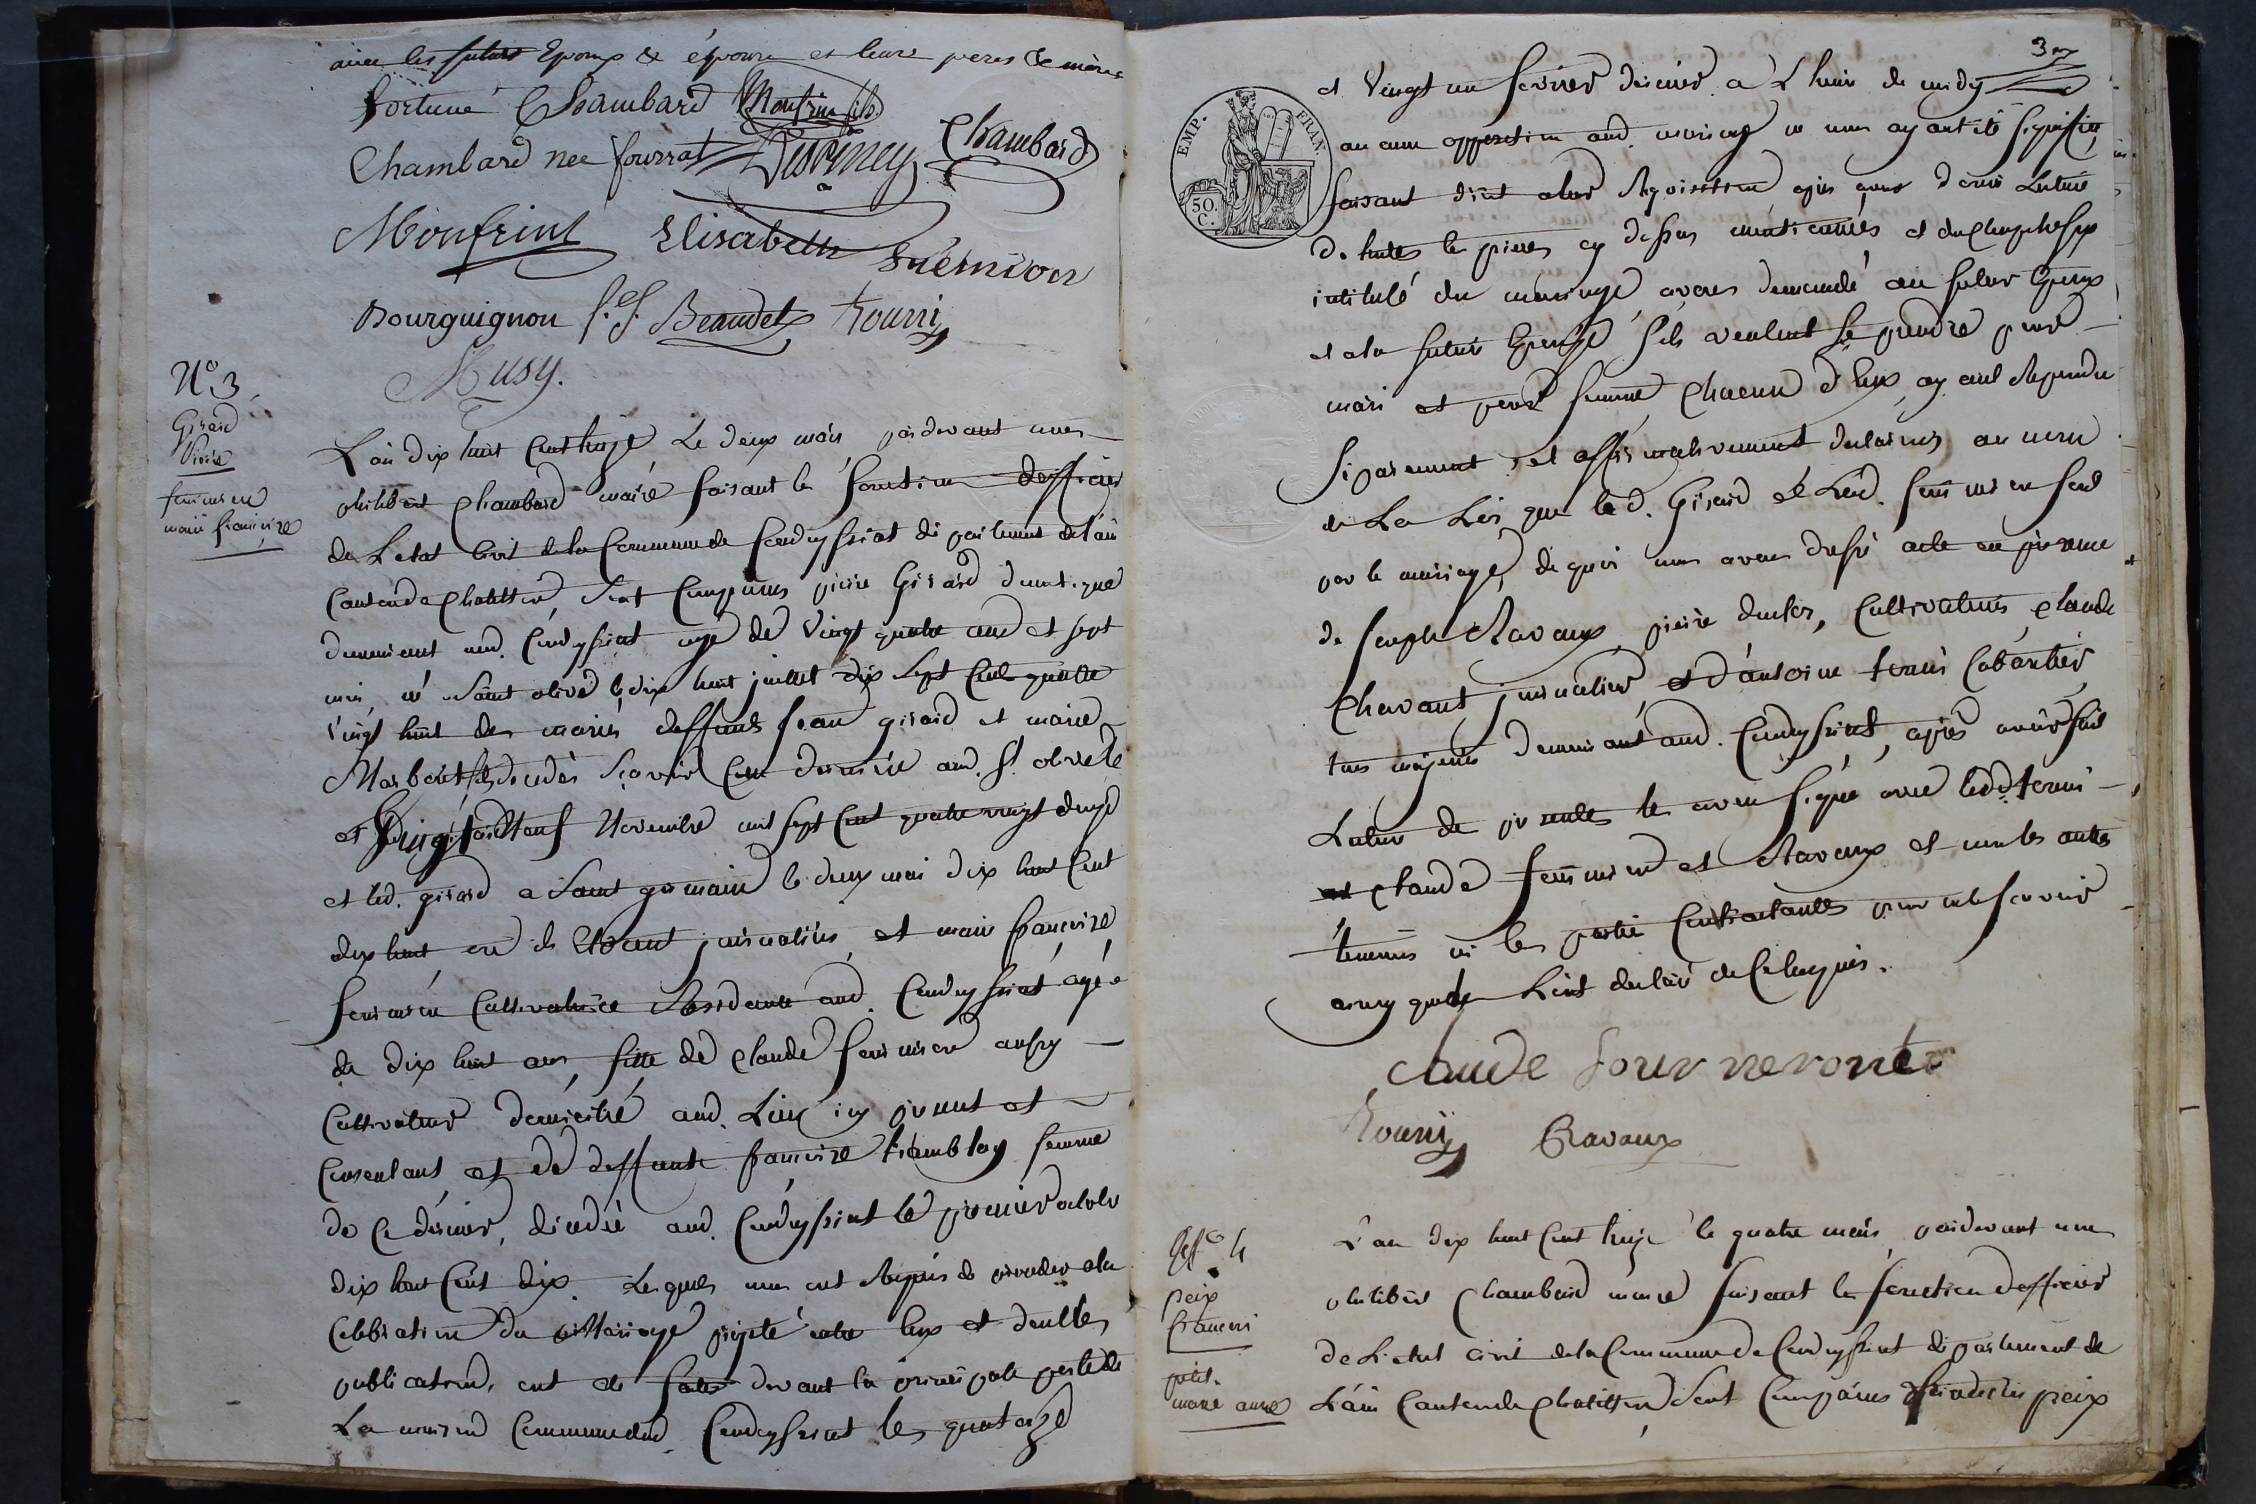 avec les futurs Epoux & épouse et leurs peres & mères
fortuné Chambard Monfrin fils
Chambard née fourrat Chambard
Monfrint Elisabeth
Bourguignon f.s. Beaudet
Musy.
N° 3
Girard
Pierre
marie françoise
L'an dix huit Cent treize Le deux mars pardevant nous
philibert Chambard maire faisant les fonctions d'officier
de L'etat Civil de la Commune de Condeyssiat département de l'ain
Canton de Chatillon, Sont Comparus pierre Girard domestique
demeurant aud. Condeyssiat agé de Vingt quatre ans et sept
mois, né a Saint olive le dix huit juillet dix Sept Cent quatre
Vingt huit des mariés deffunts jean girard et marie
décédés Sçavoir Cette dernière aud. St. olive le
Vingt neuf Novembre mil sept Cent quatre vingt douze
et led. girard a Saint germain le deux mai dix huit Cent
dix huit ou ils Etoient journaliers, et marie françoise
Cultivatrice Résidante aud. Condeyssiat agée
de dix huit ans, fille de Claude aussy
Cultivateur domicilié aud. Lieu icy présent et
Consentant et de deffunte françoise tremblay femme
de Ce dernier, décédée aud. Condeyssiat le premier octobre
dix huit Cent dix. Lesquels nous ont Requis de procéder a la
Celebration du Mariage projeté entre Eux et dont les
publications ont été faites devant la principale porte de
La maison Commune de Condeyssiat les quatorze
3
EMP. FRAN.
50 C.
et Vingt un février dernier a L'heure de midy
aucune opposition aud. mariage ne nous ayant été signifiée,
faisant droit a leur Réquisition après avoir donné Lecture
de toutes les pièces cy dessus mentionnées et du Chapitre six
intitulé du mariage avons demandé au futur Epoux
et a la future Epouse s'ils veulent se prendre pour
mari et pour femme Chacun d'Eux ayant Répondu
séparement et affirmativement declarons au nom
de La Loi que led. Girard et Lad. sont unis
par le mariage, de quoi nous avons dressé acte en présence
de joseph Ravaux, pierre Cultivateurs, Claude
Chavant journalier, et d'antoine Cabartier,
tous majeurs demeurant aud. Condeyssiat, après avoir fait
Lecture de présentes les avons signé avec
et Claude et Ravaux et non les autres
témoins ni les parties Contractantes pour ne le scavoir
ainsy qu'ils L'ont declaré de Ce Requis.
Claude
Ravaux
4
peix
françois
petit.
marie anne
L'an dix huit Cent treize le quatre mars, pardevant nous
philibert Chambard maire faisant les fonctions d'officier
de L'etat civil de la Commune de Condeyssiat département de
L'ain Canton de Chatillon, Sont Comparus françois peix